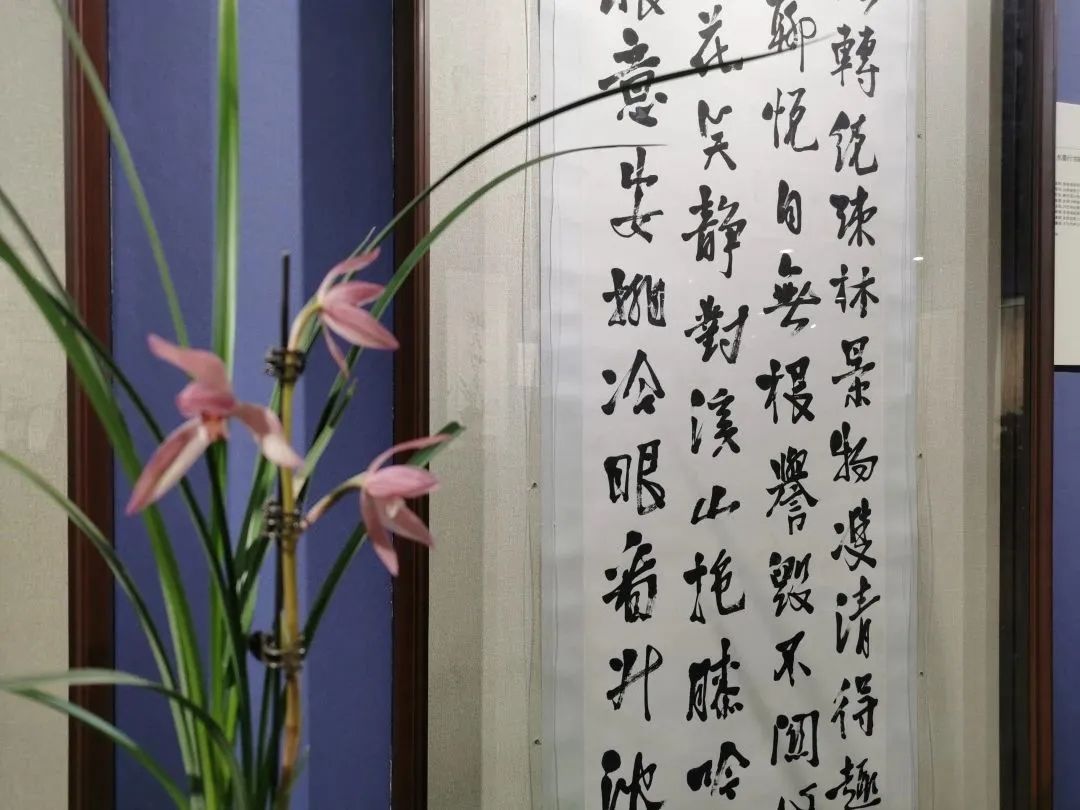 轉繞疎林景物凄清得趣
聊悦自無根譽毀不關
花笑静對溪山抱膝吟
意安排冷眼看升沈